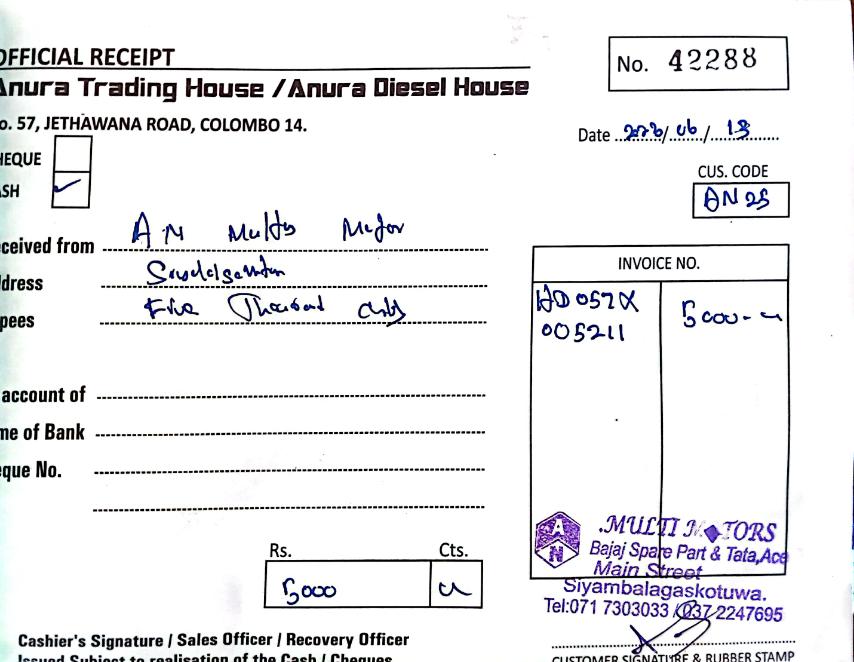 OFFICIAL RECEIPT
No. 42288
Anura Trading House / Anura Diesel House
o. 57, JETHAWANA ROAD, COLOMBO 14.
Date / 06 / 13
HEQUE
ASH
CUS. CODE
AN 25
ceived from A N Multy Motor
dress
pees Five Thousand only
INVOICE NO.
005211
5000
account of
me of Bank
eque No.
Rs. Cts.
5000
A
N
MULTI MOTORS
Bajaj Spare Part & Tata,Ace
Main Street
Siyambalagaskotuwa.
Tel:071 7303033 /037 2247695
Cashier's Signature / Sales Officer / Recovery Officer
Issued Subject to realisation of the Cash / Cheques
CUSTOMER SIGNATURE & RUBBER STAMP